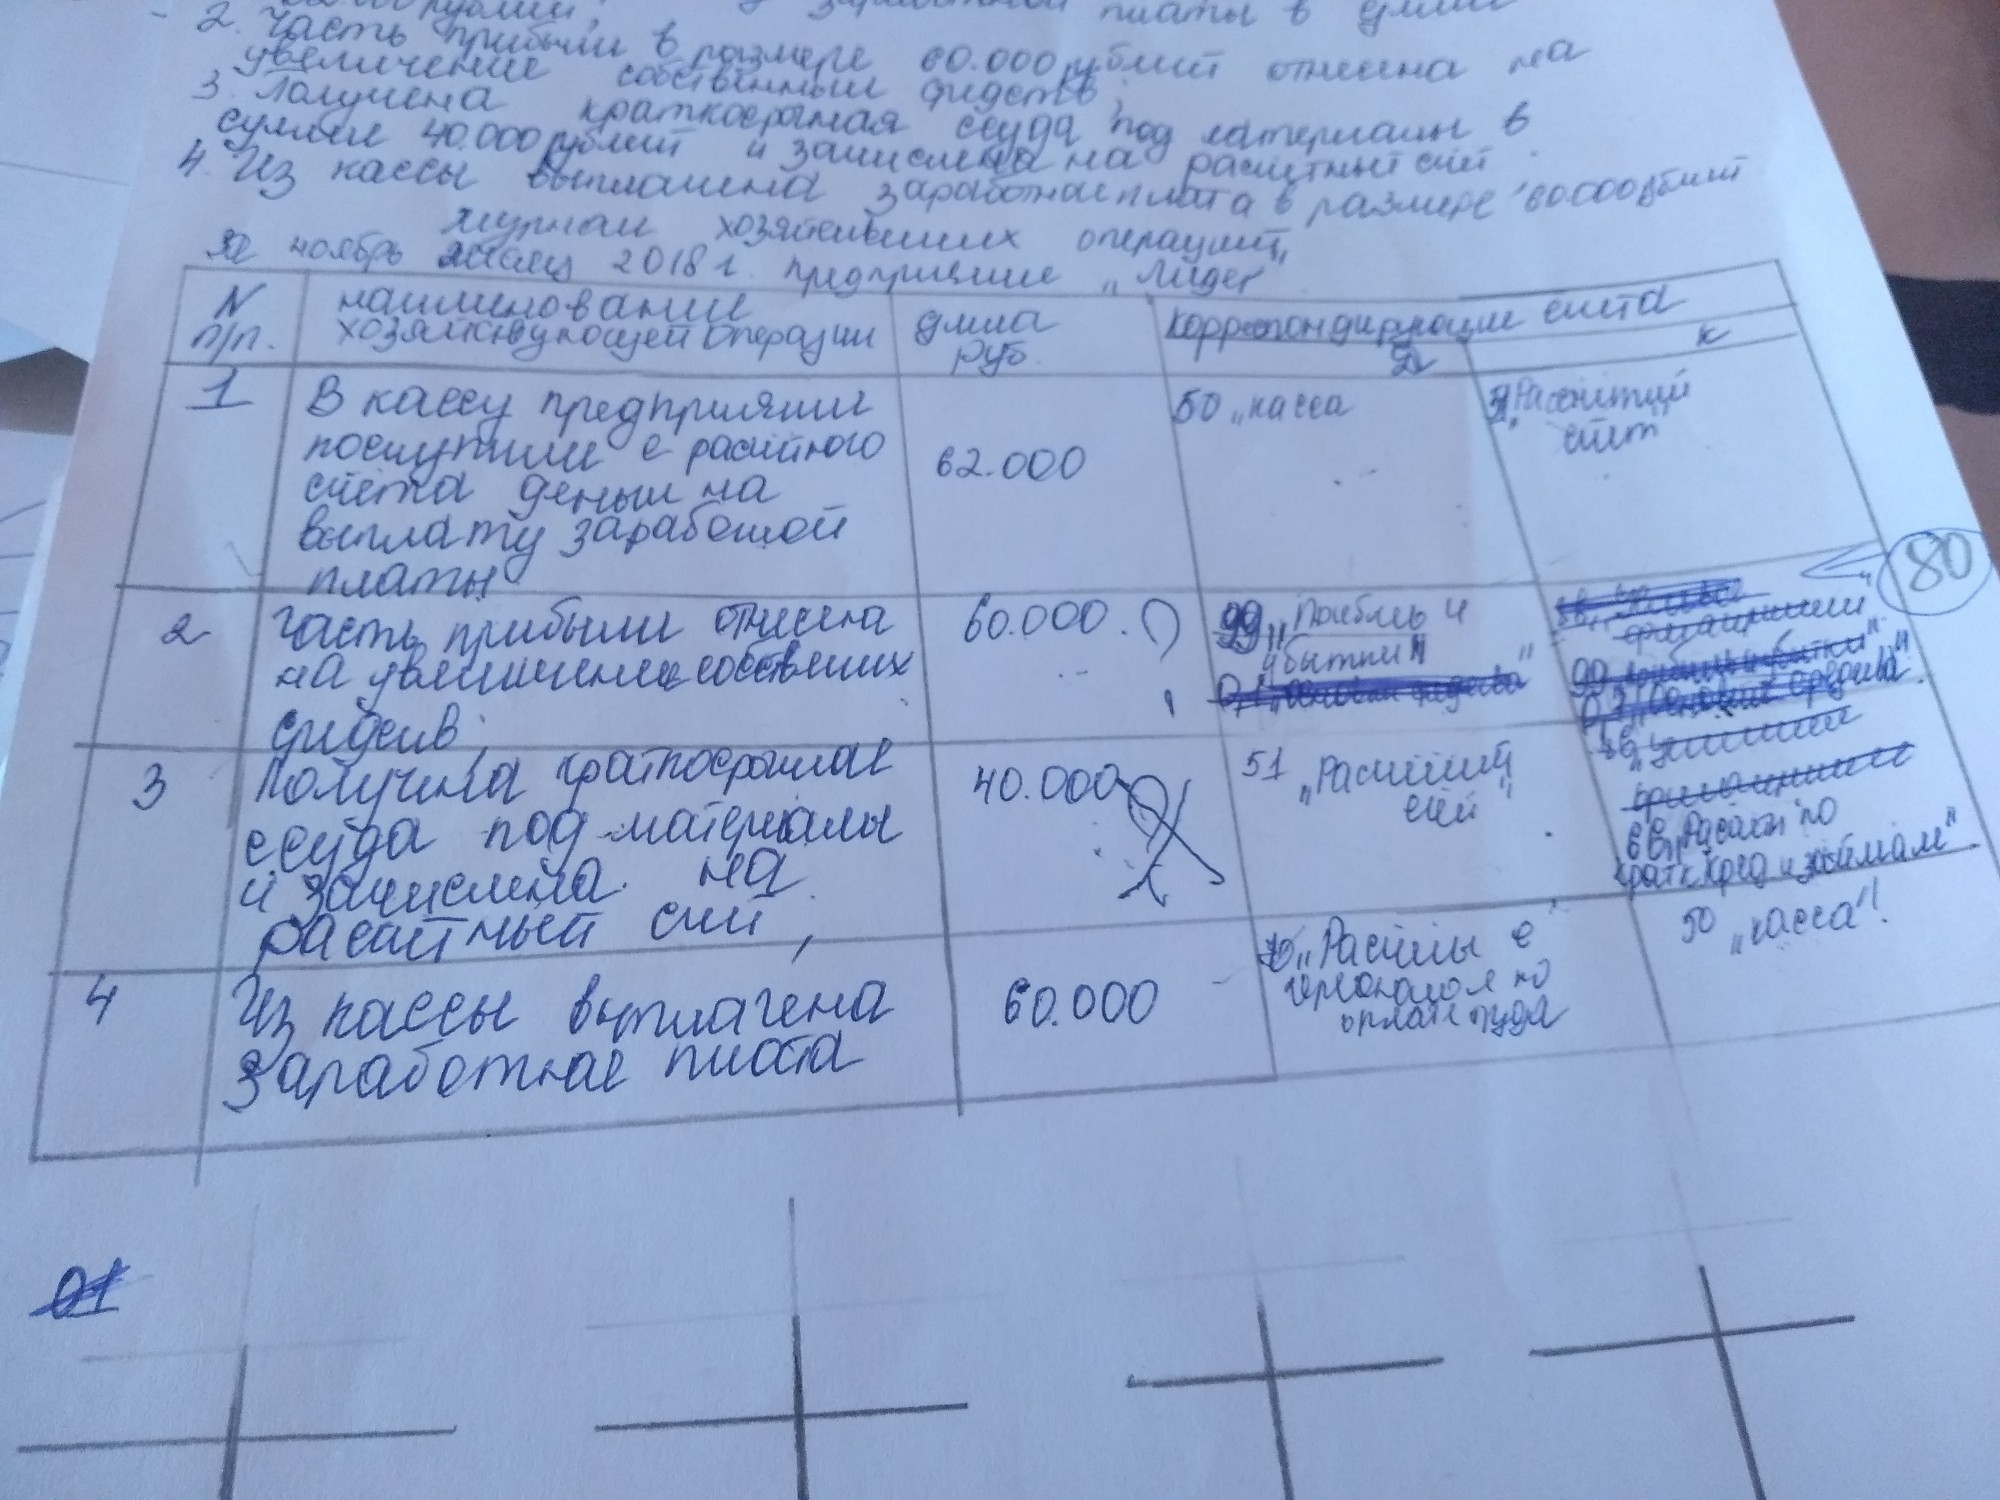 заработной платы в сумме
2. Часть прибыли в размере 60.000 рублей отнесена на
увеличение собственных средств;
3. Получена краткосрочная ссуда под материалы в
сумме 40.000 рублей и зачислена на расчетный счёт.
4. Из кассы выплачена заработная плата в размере 60.000 рублей
журнал хозяйственных операций
за ноябрь месяц 2018 г. предприятие „Лидер"
N
п/п.
наименование
хозяйствующей операции
сумма
руб.
корреспондирующие счета
Д
К
1
В кассу предприятия
поступили с расчётного
счёта деньги на
выплату заработной
платы
62.000
50 „касса
51 „Расчётный
счёт"
2
Часть прибыли отнесена
на увеличение собственных
средств;
60.000.
99 „Прибыль и
убытки"
80
3
Получена краткосрочная
ссуда под материалы
и зачислена на
расчётный счёт,
40.000
51 „Расчётный
счёт"
66 „Расчёты по
кратк. кред и займам"
4
Из кассы выплачена
заработная плата
60.000
70 „Расчёты с
персоналом по
оплате труда
50 „касса"
01